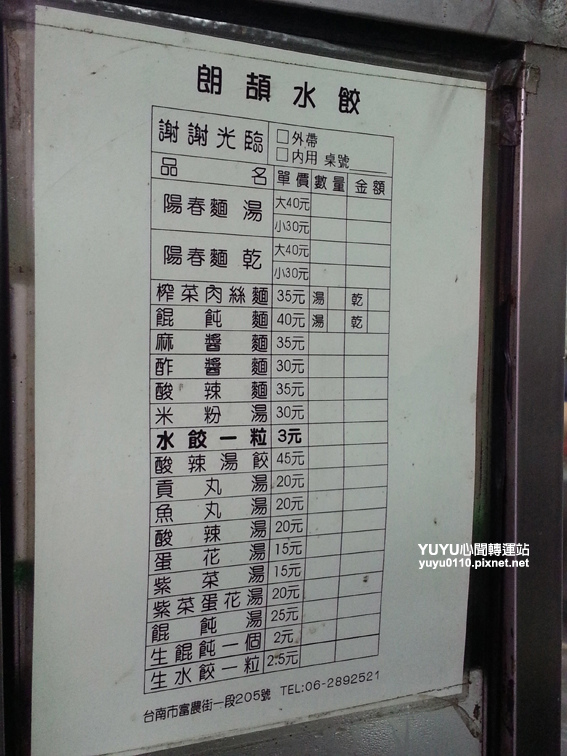 朗頡水餃
謝謝光臨 □外帶
□內用 桌號____
品名 單價 數量 金額
陽春麵 湯 大40元
小30元
陽春麵 乾 大40元
小30元
榨菜肉絲麵 35元 湯 乾
餛飩麵 40元 湯 乾
麻醬麵 35元
酢醬麵 30元
酸辣麵 35元
米粉湯 30元
水餃一粒 3元
酸辣湯餃 45元
貢丸湯 20元
魚丸湯 20元
酸辣湯 20元
蛋花湯 15元
紫菜湯 15元
紫菜蛋花湯 20元
餛飩湯 25元
生餛飩一個 2元
生水餃一粒 2.5元
台南市富農街一段205號 TEL:06-2892521
YUYU心聞轉運站
yuyu0110.pixnet.net